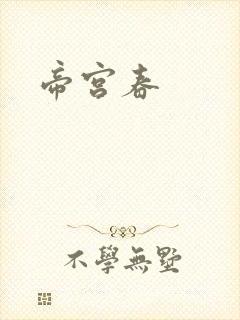 帝宫春
不學無墅